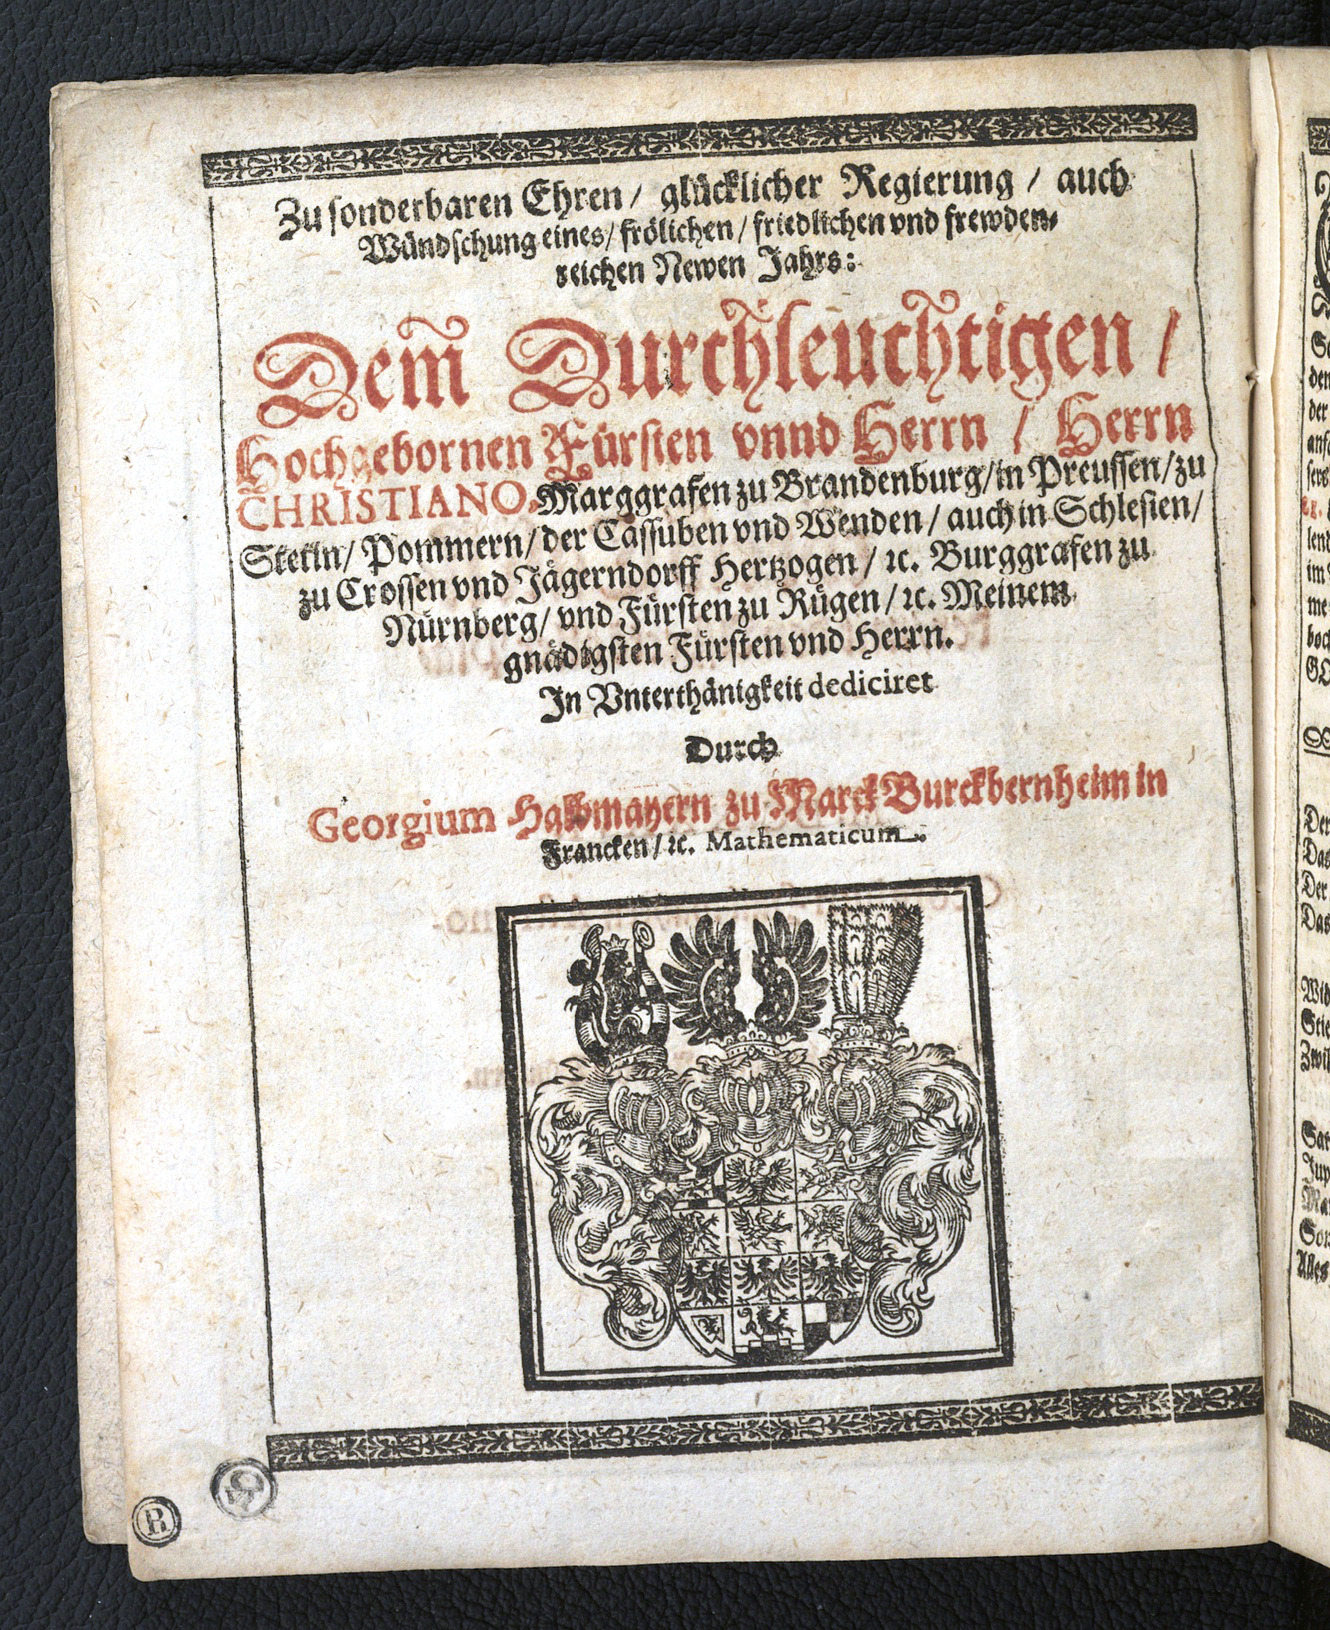 Zu sonderbaren Ehren / glücklicher Regierung / auch
Wündschung eines / frölichen / friedlichen vnd frewden-
reichen Newen Jahrs:
Dem Durchleuchtigen /
Hochgebornen Fürsten vnnd Herrn / Herrn
CHRISTIANO, Marggrafen zu Brandenburg / in Preussen / zu
Stetin / Pommern / der Cassuben vnd Wenden / auch in Schlesien /
zu Crossen vnd Jägerndorff Hertzogen / ꝛc. Burggrafen zu
Nürnberg / vnd Fürsten zu Rügen / ꝛc. Meinem
gnädigsten Fürsten vnd Herrn.
In Vnterthänigkeit dediciret
Durch
Georgium Halbmayern zu Marck Burckbernheim in
Francken / ꝛc. Mathematicum.
R
Der
Das
Der
Das